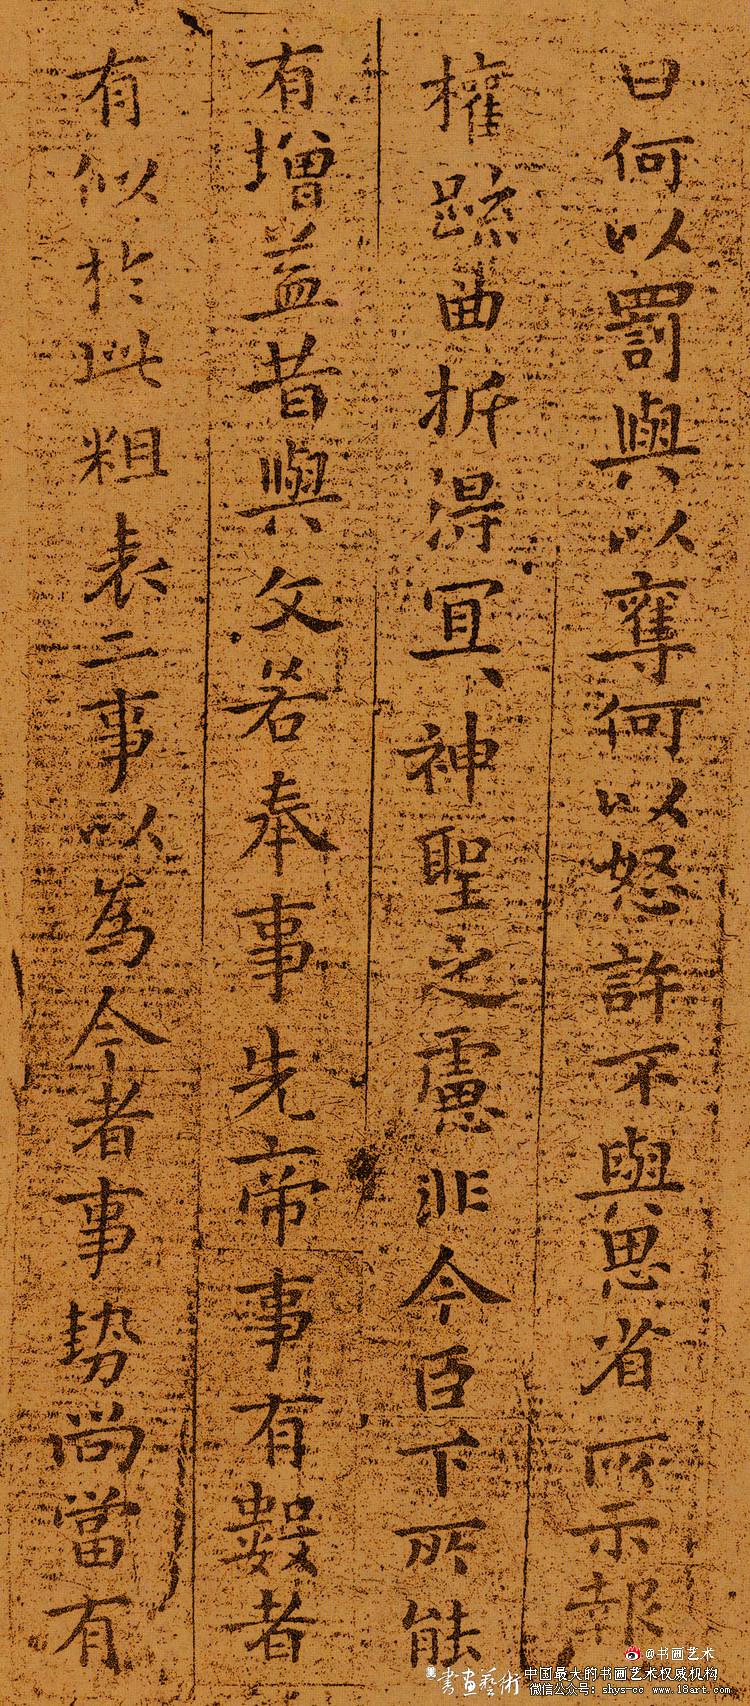 曰何以罰與以奪何以怒許不與思省所示報
權疏曲折得冝神聖之慮非今臣下所能
有增益昔與文若奉事先帝事有數者
有似於此粗表二事以為今者事勢尚當有
@书画艺术
書畫藝術
中国最大的书画艺术权威机构
微信公众号: shys-cc www.18art.com